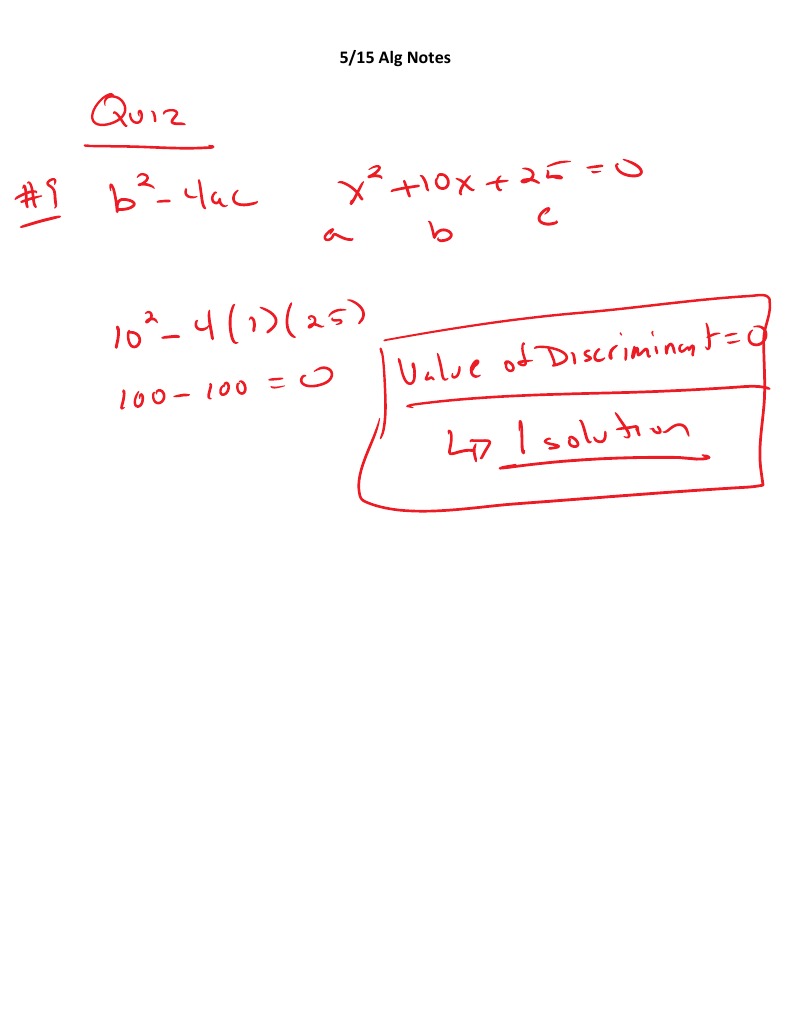 5/15 Alg Notes
Quiz
#9 b² - 4ac x² + 10x + 25 = 0
a b c
10² - 4(1)(25)
100 - 100 = 0
Value of Discriminant = 0
↳ 1 solution